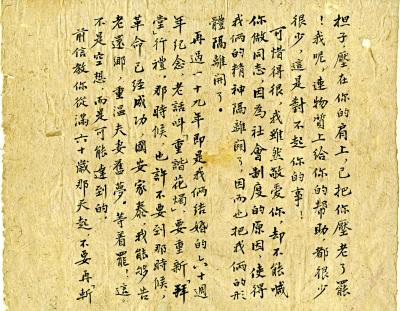 担子壓在你的肩上，已把你壓老了罷
！我呢，連物質上給你的帮助，都很少
很少，這是對不起你的事！
可惜得很，我雖然敬愛你，却不能喊
你做同志，因為社會制度的原因，使得
我倆的精神隔離開了，因而也把我倆的形
體隔離開了。
再過一十九年即是我倆結婚的六十週
年紀念，老話叫「重諧花燭」，要重新「拜
堂行禮」，那時候，也許不要到那時候，
革命已經成功，國安家泰，我能够告
老還鄉，重温夫妻舊夢，等着罷！這
不是空想，而是可能達到的。
前信教你從滿六十歲那天起，不要再「斬